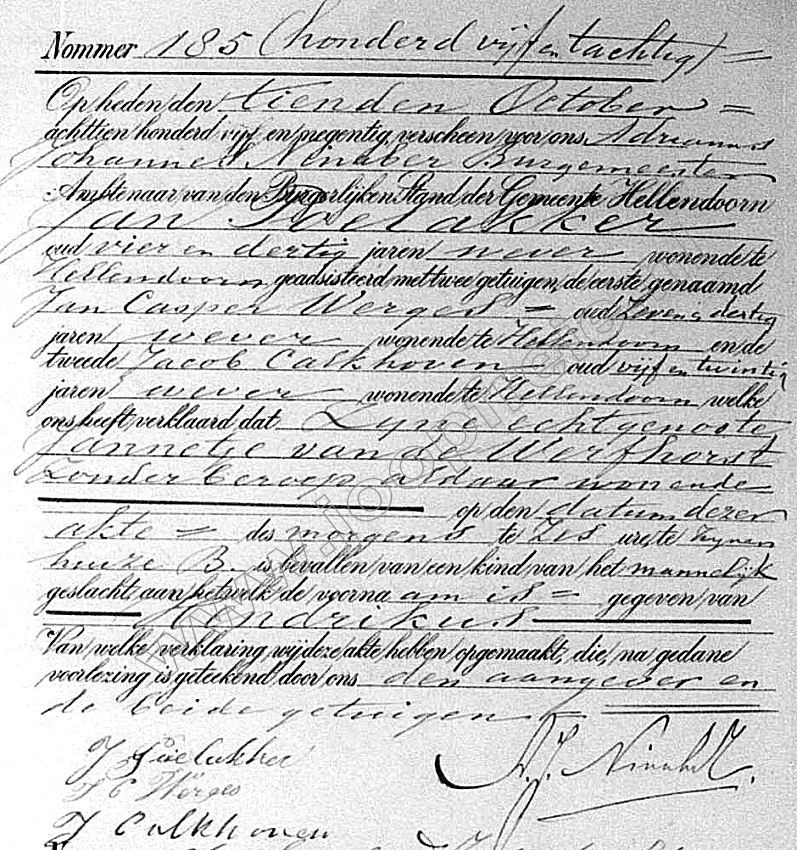 Nommer 185 (honderd vijf en tachtig) =
Op heden den tienden October =
achttien honderd vijf en negentig, verscheen voor ons Adrianus
Johannes Ninaber Burgemeester
Ambtenaar van den Burgerlijken Stand der Gemeente Hellendoorn
Jan Poelakker
oud vier en dertig jaren wever wonende te
Hellendoorn geadsisteerd met twee getuigen, de eerste genaamd
Jan Casper Werges = oud zeven en dertig
jaren wever wonende te Hellendoorn en de
tweede Jacob Calkhoven = oud vijf en twintig
jaren wever wonende te Hellendoorn welke
ons heeft verklaard dat Zyne echtgenoote
Jannetje van de Werfhorst
zonder beroep aldaar wonende
op den datum dezer
akte = des morgens te zes ure, te zynen
huize B. is bevallen van een kind van het mannelijk
geslacht aan hetwelk de voornaam is = gegeven van
Hendrikus
Van welke verklaring wij deze akte hebben opgemaakt, die, na gedane
voorlezing is geteekend door ons den aangever en
de beide getuigen =
J Poelakker
A. J. Ninaber.
J C Werges
J Calkhoven